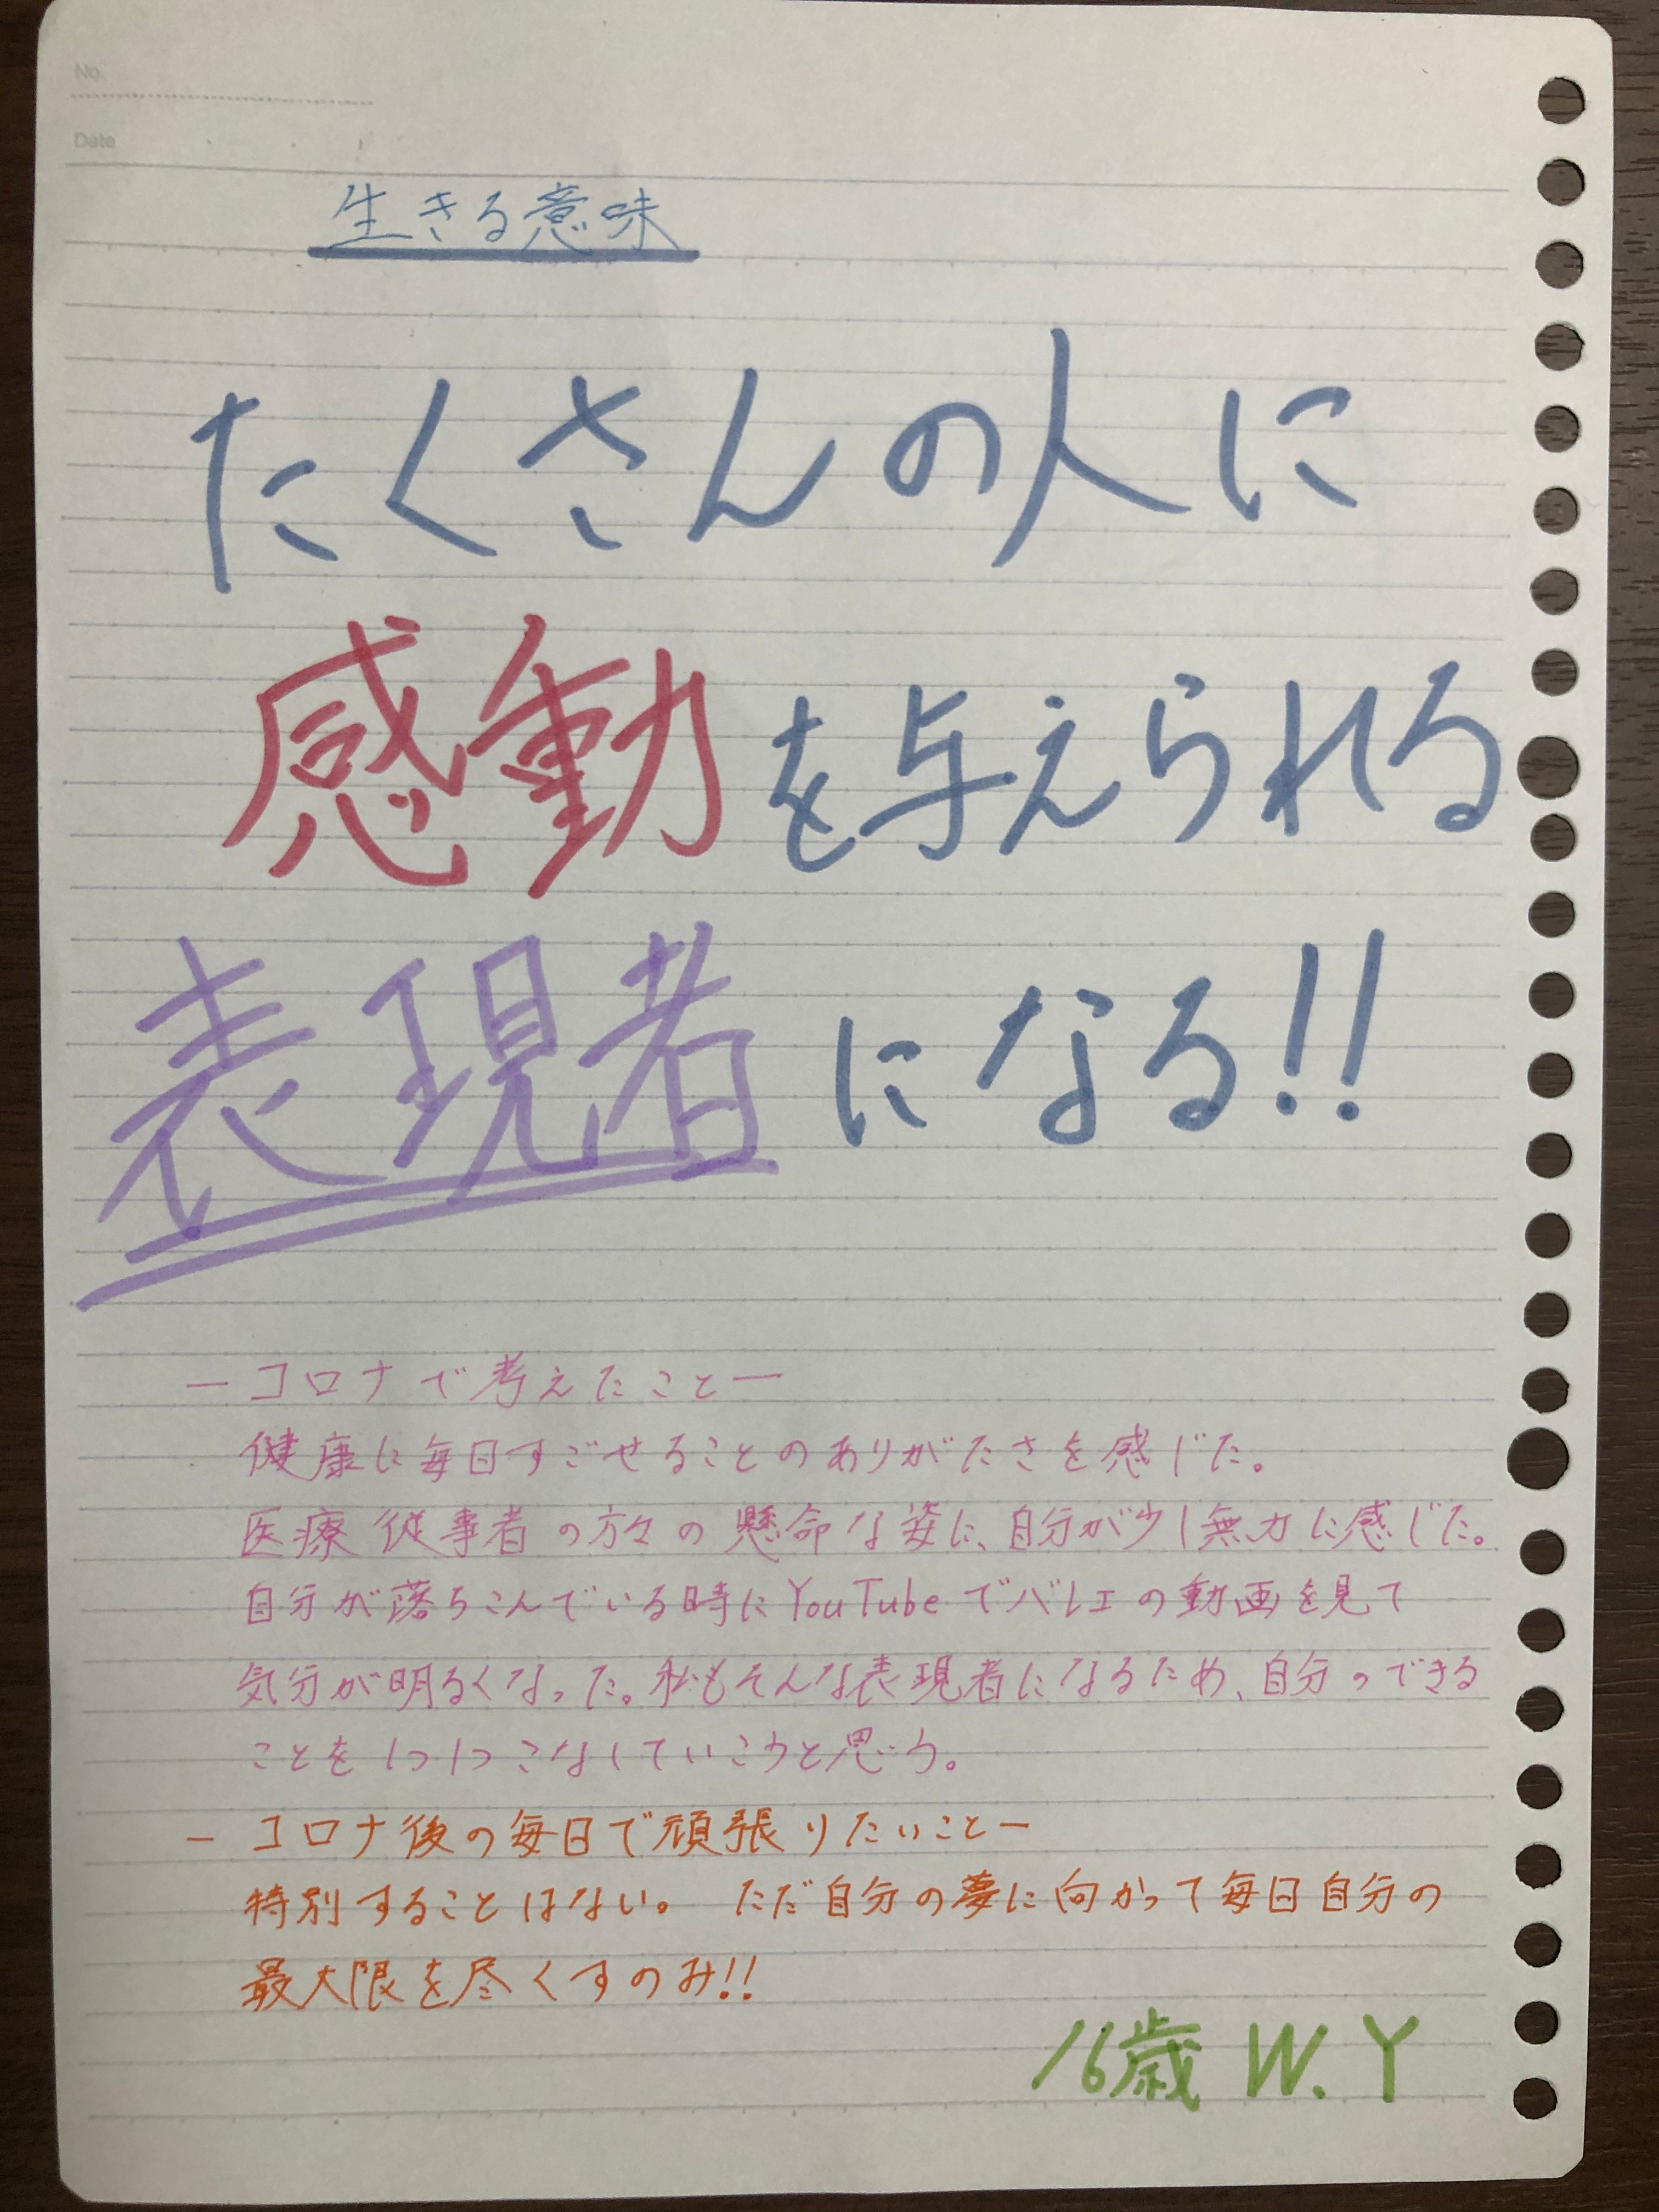 No.
Date
生きる意味
たくさんの人に
感動を与えられる
表現者になる!!
ーコロナで考えたことー
健康に毎日すごせることのありがたさを感じた。
医療従事者の方々の懸命な姿に、自分が少し無力に感じた。
自分が落ちこんでいる時にYouTubeでバレエの動画を見て
気分が明るくなった。私もそんな表現者になるため、自分のできる
ことを1つ1つこなしていこうと思う。
ーコロナ後の毎日で頑張りたいことー
特別することはない。 ただ自分の夢に向かって毎日自分の
最大限を尽くすのみ!!
16歳 W.Y